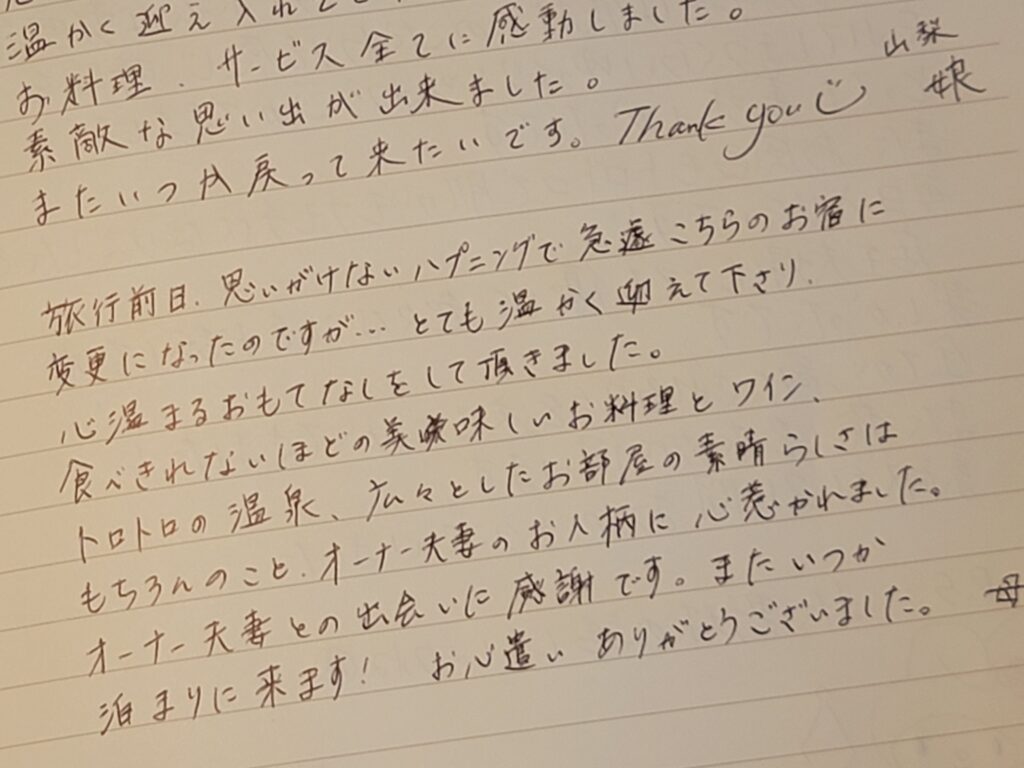 温かく迎え入れて
お料理、サービス全てに感動しました。
素敵な思い出が出来ました。 山梨
またいつか戻って来たいです。Thank you 娘
旅行前日、思いがけないハプニングで急遽こちらのお宿に
変更になったのですが…とても温かく迎えて下さり、
心温まるおもてなしをして頂きました。
食べきれないほどの美味しいお料理とワイン、
トロトロの温泉、広々としたお部屋の素晴らしさは
もちろんのこと、オーナー夫妻のお人柄に心惹かれました。
オーナー夫妻との出会いに感謝です。またいつか
泊まりに来ます! お心遣いありがとうございました。 母